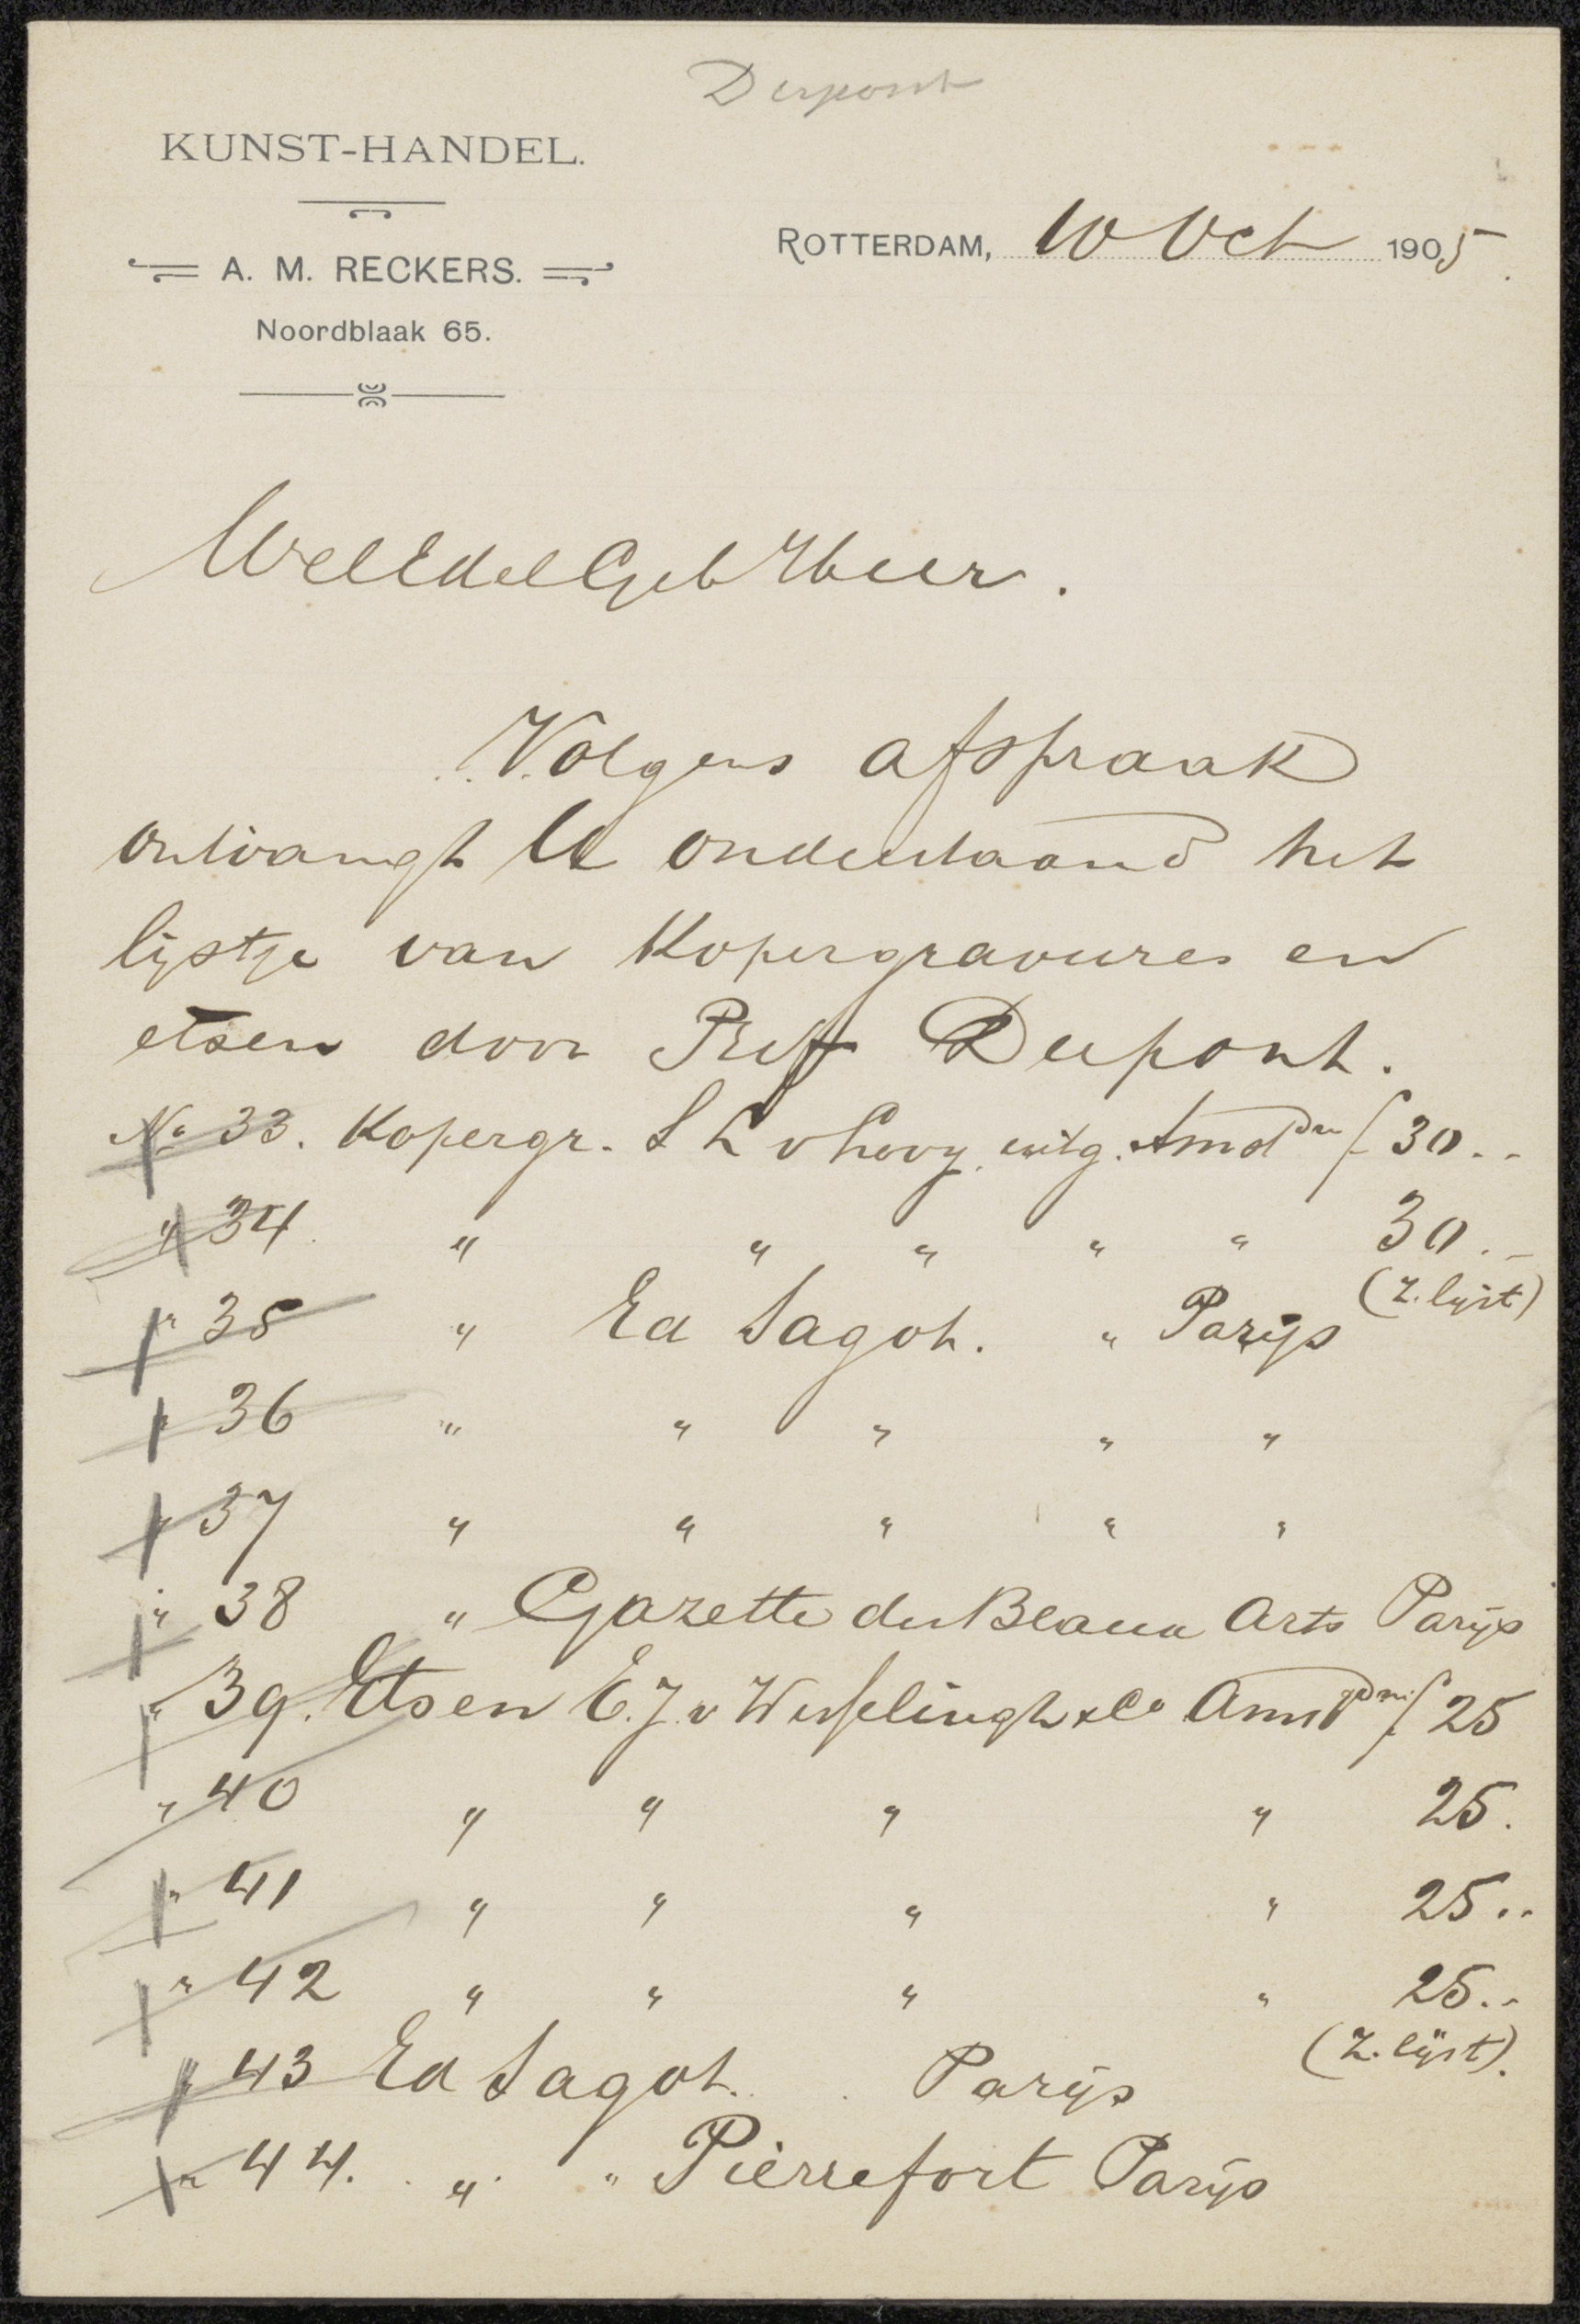 Dupont
KUNST-HANDEL.
A. M. RECKERS.
Noordblaak 65.
ROTTERDAM, 10 Oct 1905.
WelEdelGeb Heer.
Volgens afspraak
ontvangt U onderstaand het
lijstje van Kopergravures en
etsen door Prof Dupont.
No 33. Kopergr. S L v Looy uitg. Amsdm f 30..
" 34. " " " " " 30.-
" 35 " Ed Sagot. " Parijs (z. lijst)
" 36 " " " " "
" 37 " " " " "
" 38 " Gazette des Beaux Arts Parijs
" 39. Etsen E.J. v Wisselingh & Co Amsdm f 25
" 40 " " " " 25.
" 41 " " " " 25..
" 42 " " " " 25..
" 43 Ed Sagot. Parijs (z. lijst).
" 44. " " Pièrrefort Parijs